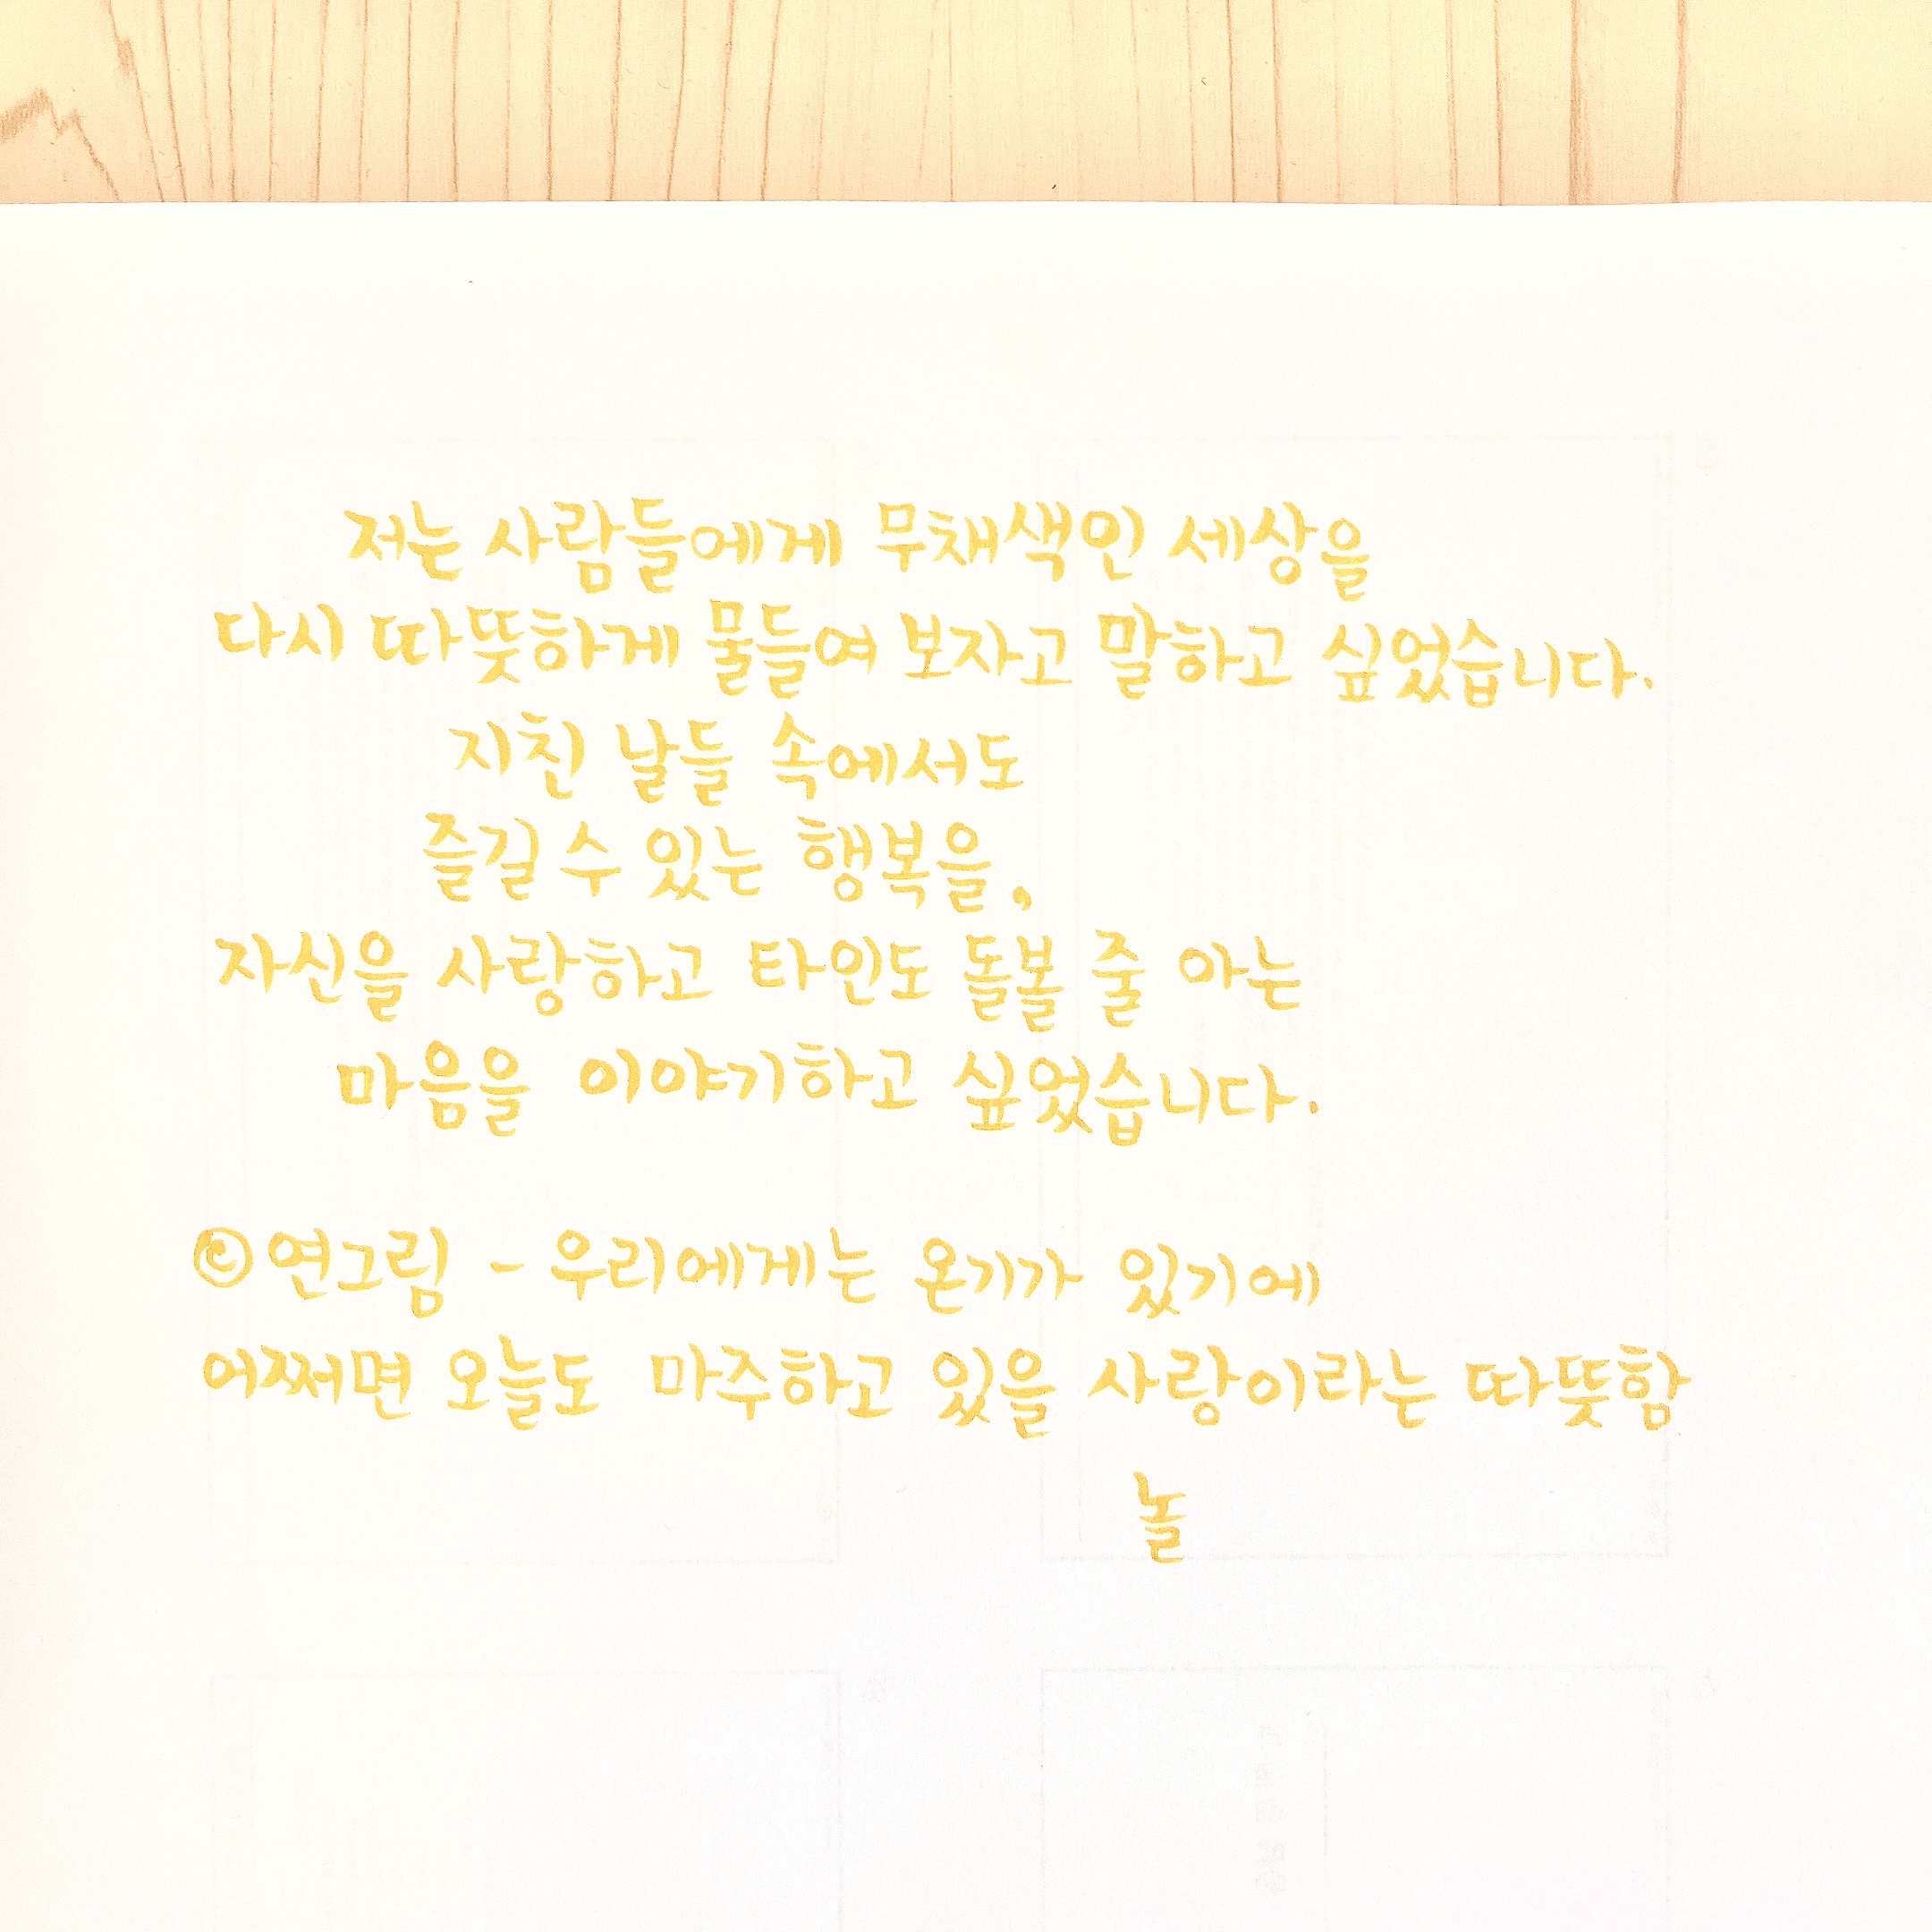 저는 사람들에게 무채색인 세상을
다시 따뜻하게 물들여 보자고 말하고 싶었습니다.
지친 날들 속에서도
즐길 수 있는 행복을,
자신을 사랑하고 타인도 돌볼 줄 아는
마음을 이야기하고 싶었습니다.
©연그림 - 우리에게는 온기가 있기에
어쩌면 오늘도 마주하고 있을 사랑이라는 따뜻함
놀